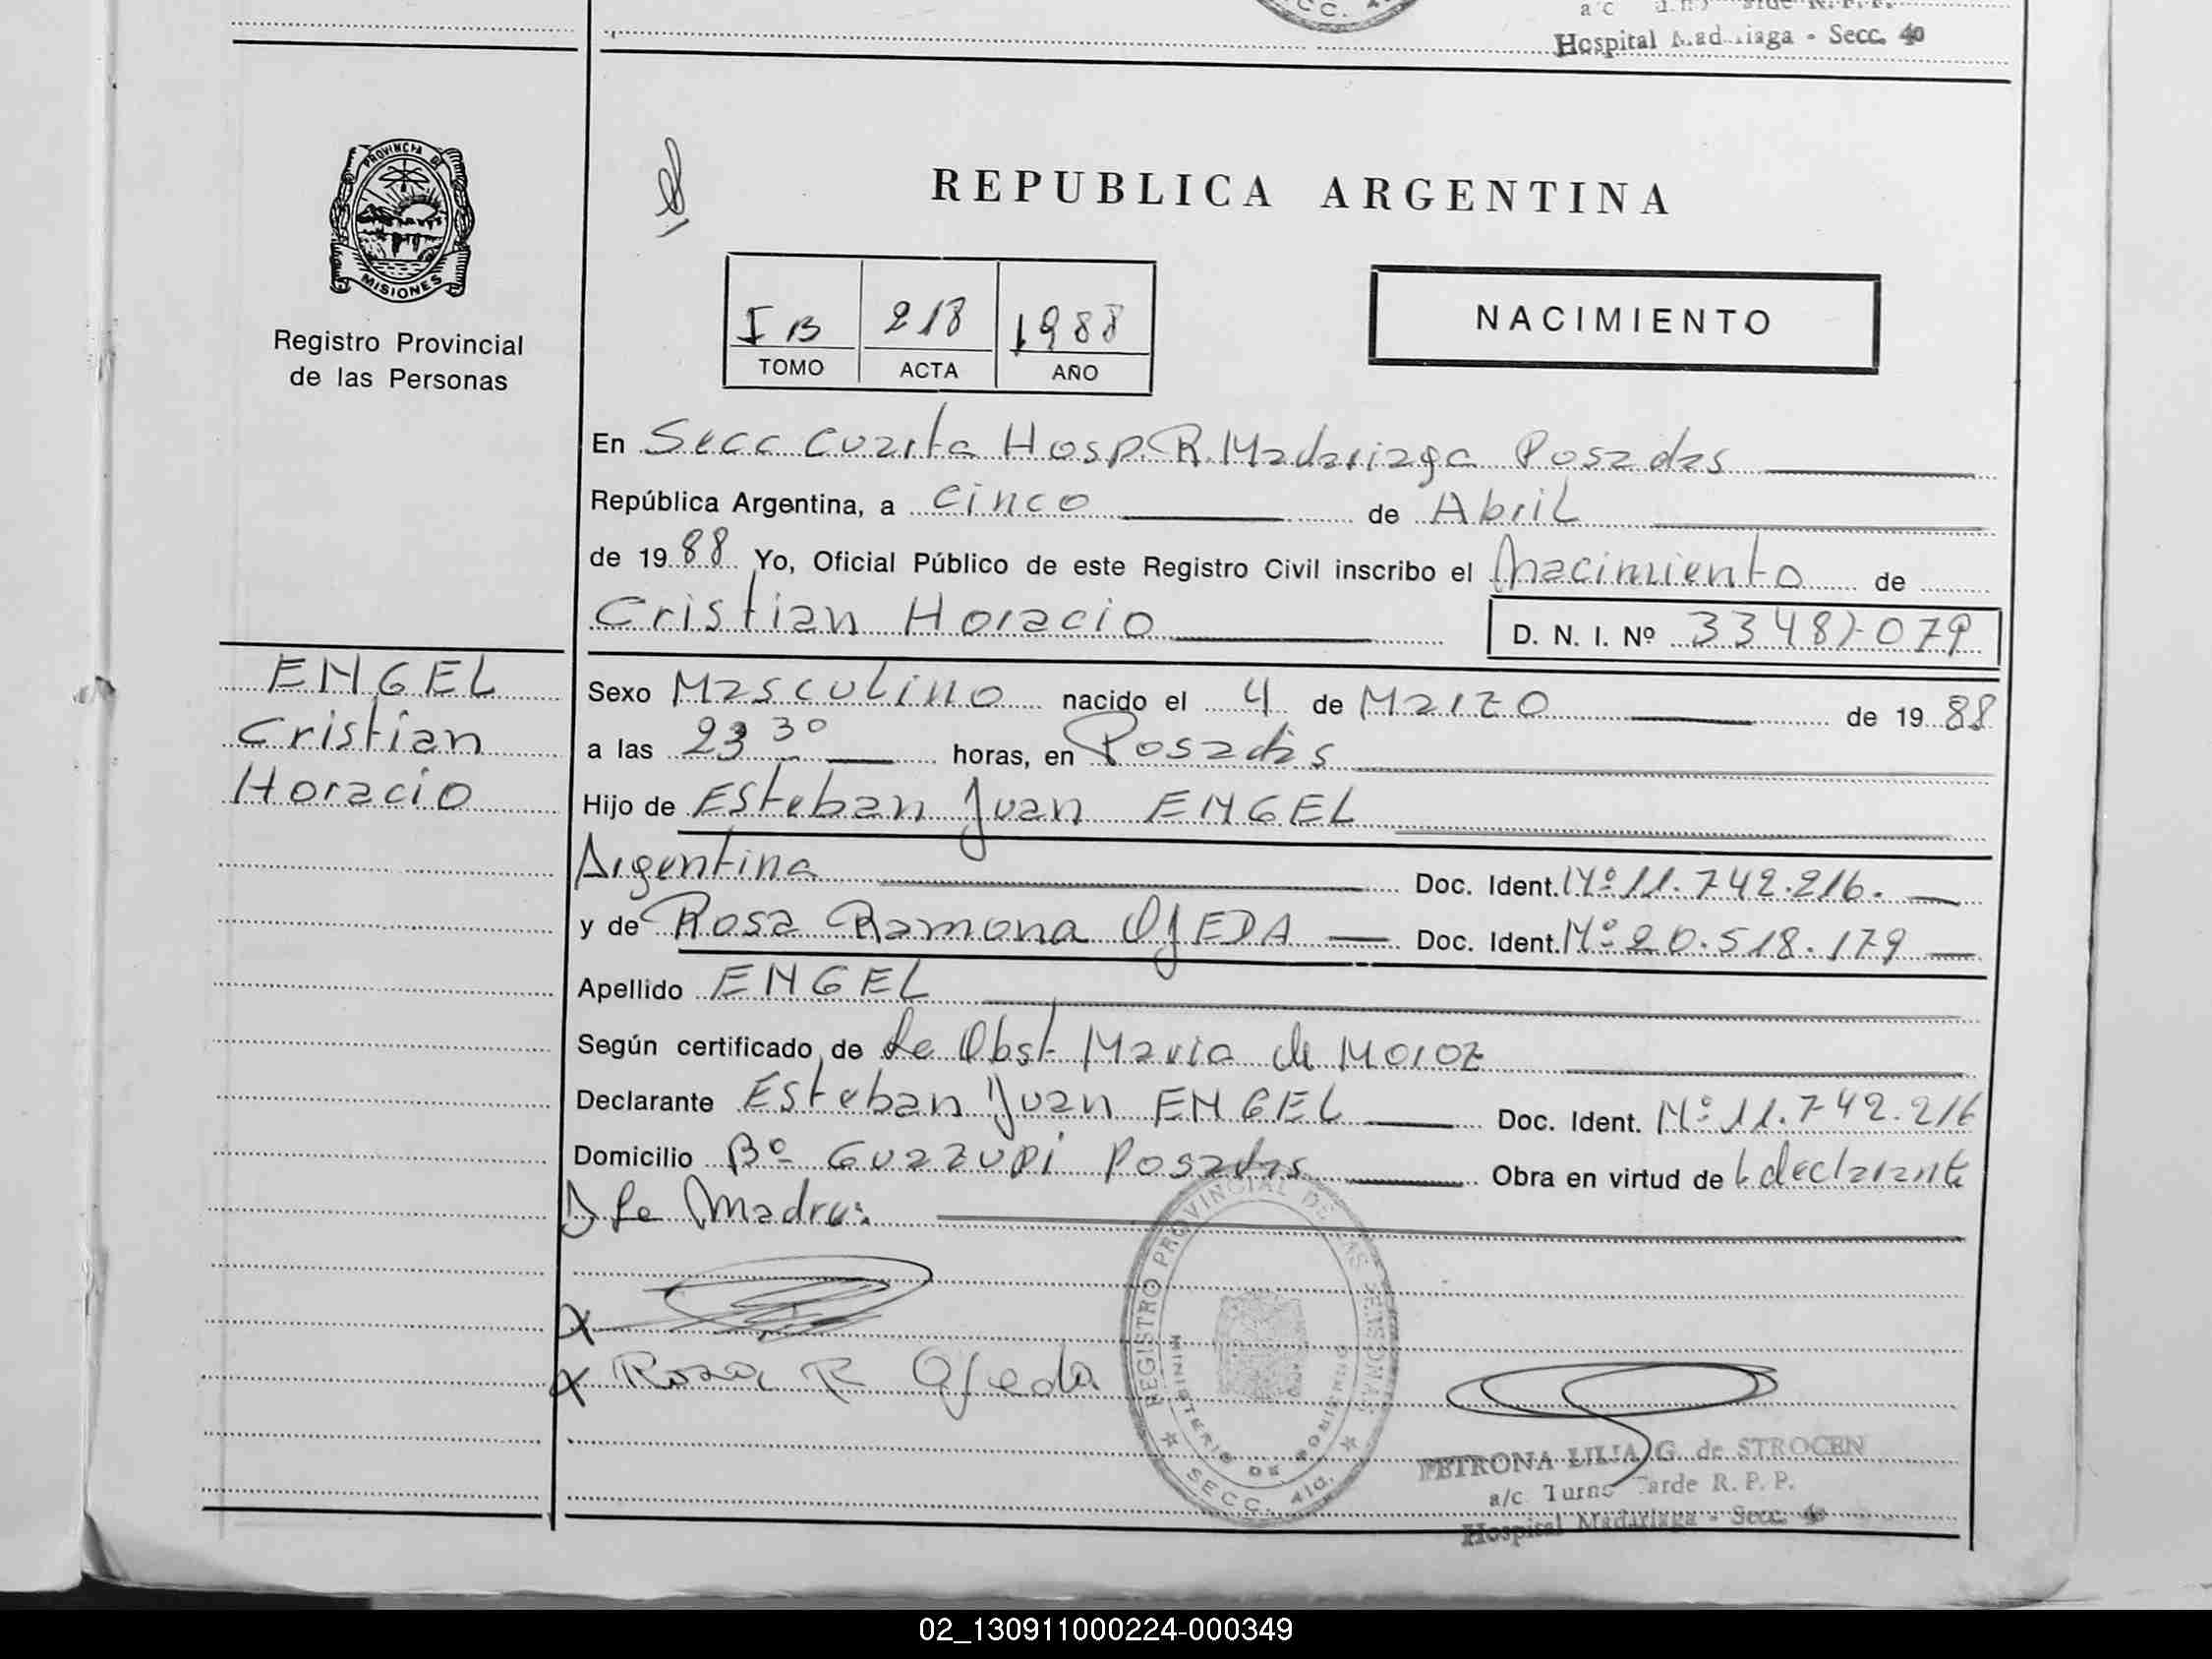 Hospital Madariaga - Secc. 4o
PROVINCIA DE
MISIONES
Registro Provincial
de las Personas
REPUBLICA ARGENTINA
I B 218 1988
TOMO ACTA AÑO
NACIMIENTO
En Secc Cuarta Hosp. R. Madariaga Posadas
República Argentina, a cinco de Abril
de 1988 Yo, Oficial Público de este Registro Civil inscribo el Nacimiento de
Cristian Horacio D. N. I. Nº 33487079
ENGEL
Cristian
Horacio
Sexo Masculino nacido el 4 de Marzo de 1988
a las 23 30 horas, en Posadas
Hijo de Esteban Juan ENGEL
Argentina Doc. Ident. Nº 11.742.216.
y de Rosa Ramona OJEDA Doc. Ident. Nº 20.518.179
Apellido ENGEL
Según certificado de La Obst Maria de Moroz
Declarante Esteban Juan ENGEL Doc. Ident. Nº 11.742.216
Domicilio Bº Guazupi Posadas Obra en virtud de declarante
La Madre:
X
X Rosa R Ojeda
REGISTRO PROVINCIAL DE LAS PERSONAS
MINISTERIO DE GOBIERNO
SECC. 4ta.
PETRONA LILIA G. de STROCEN
a/c Turno Tarde R. P. P.
Hospital Madariaga - Secc. 4o
02_130911000224-000349